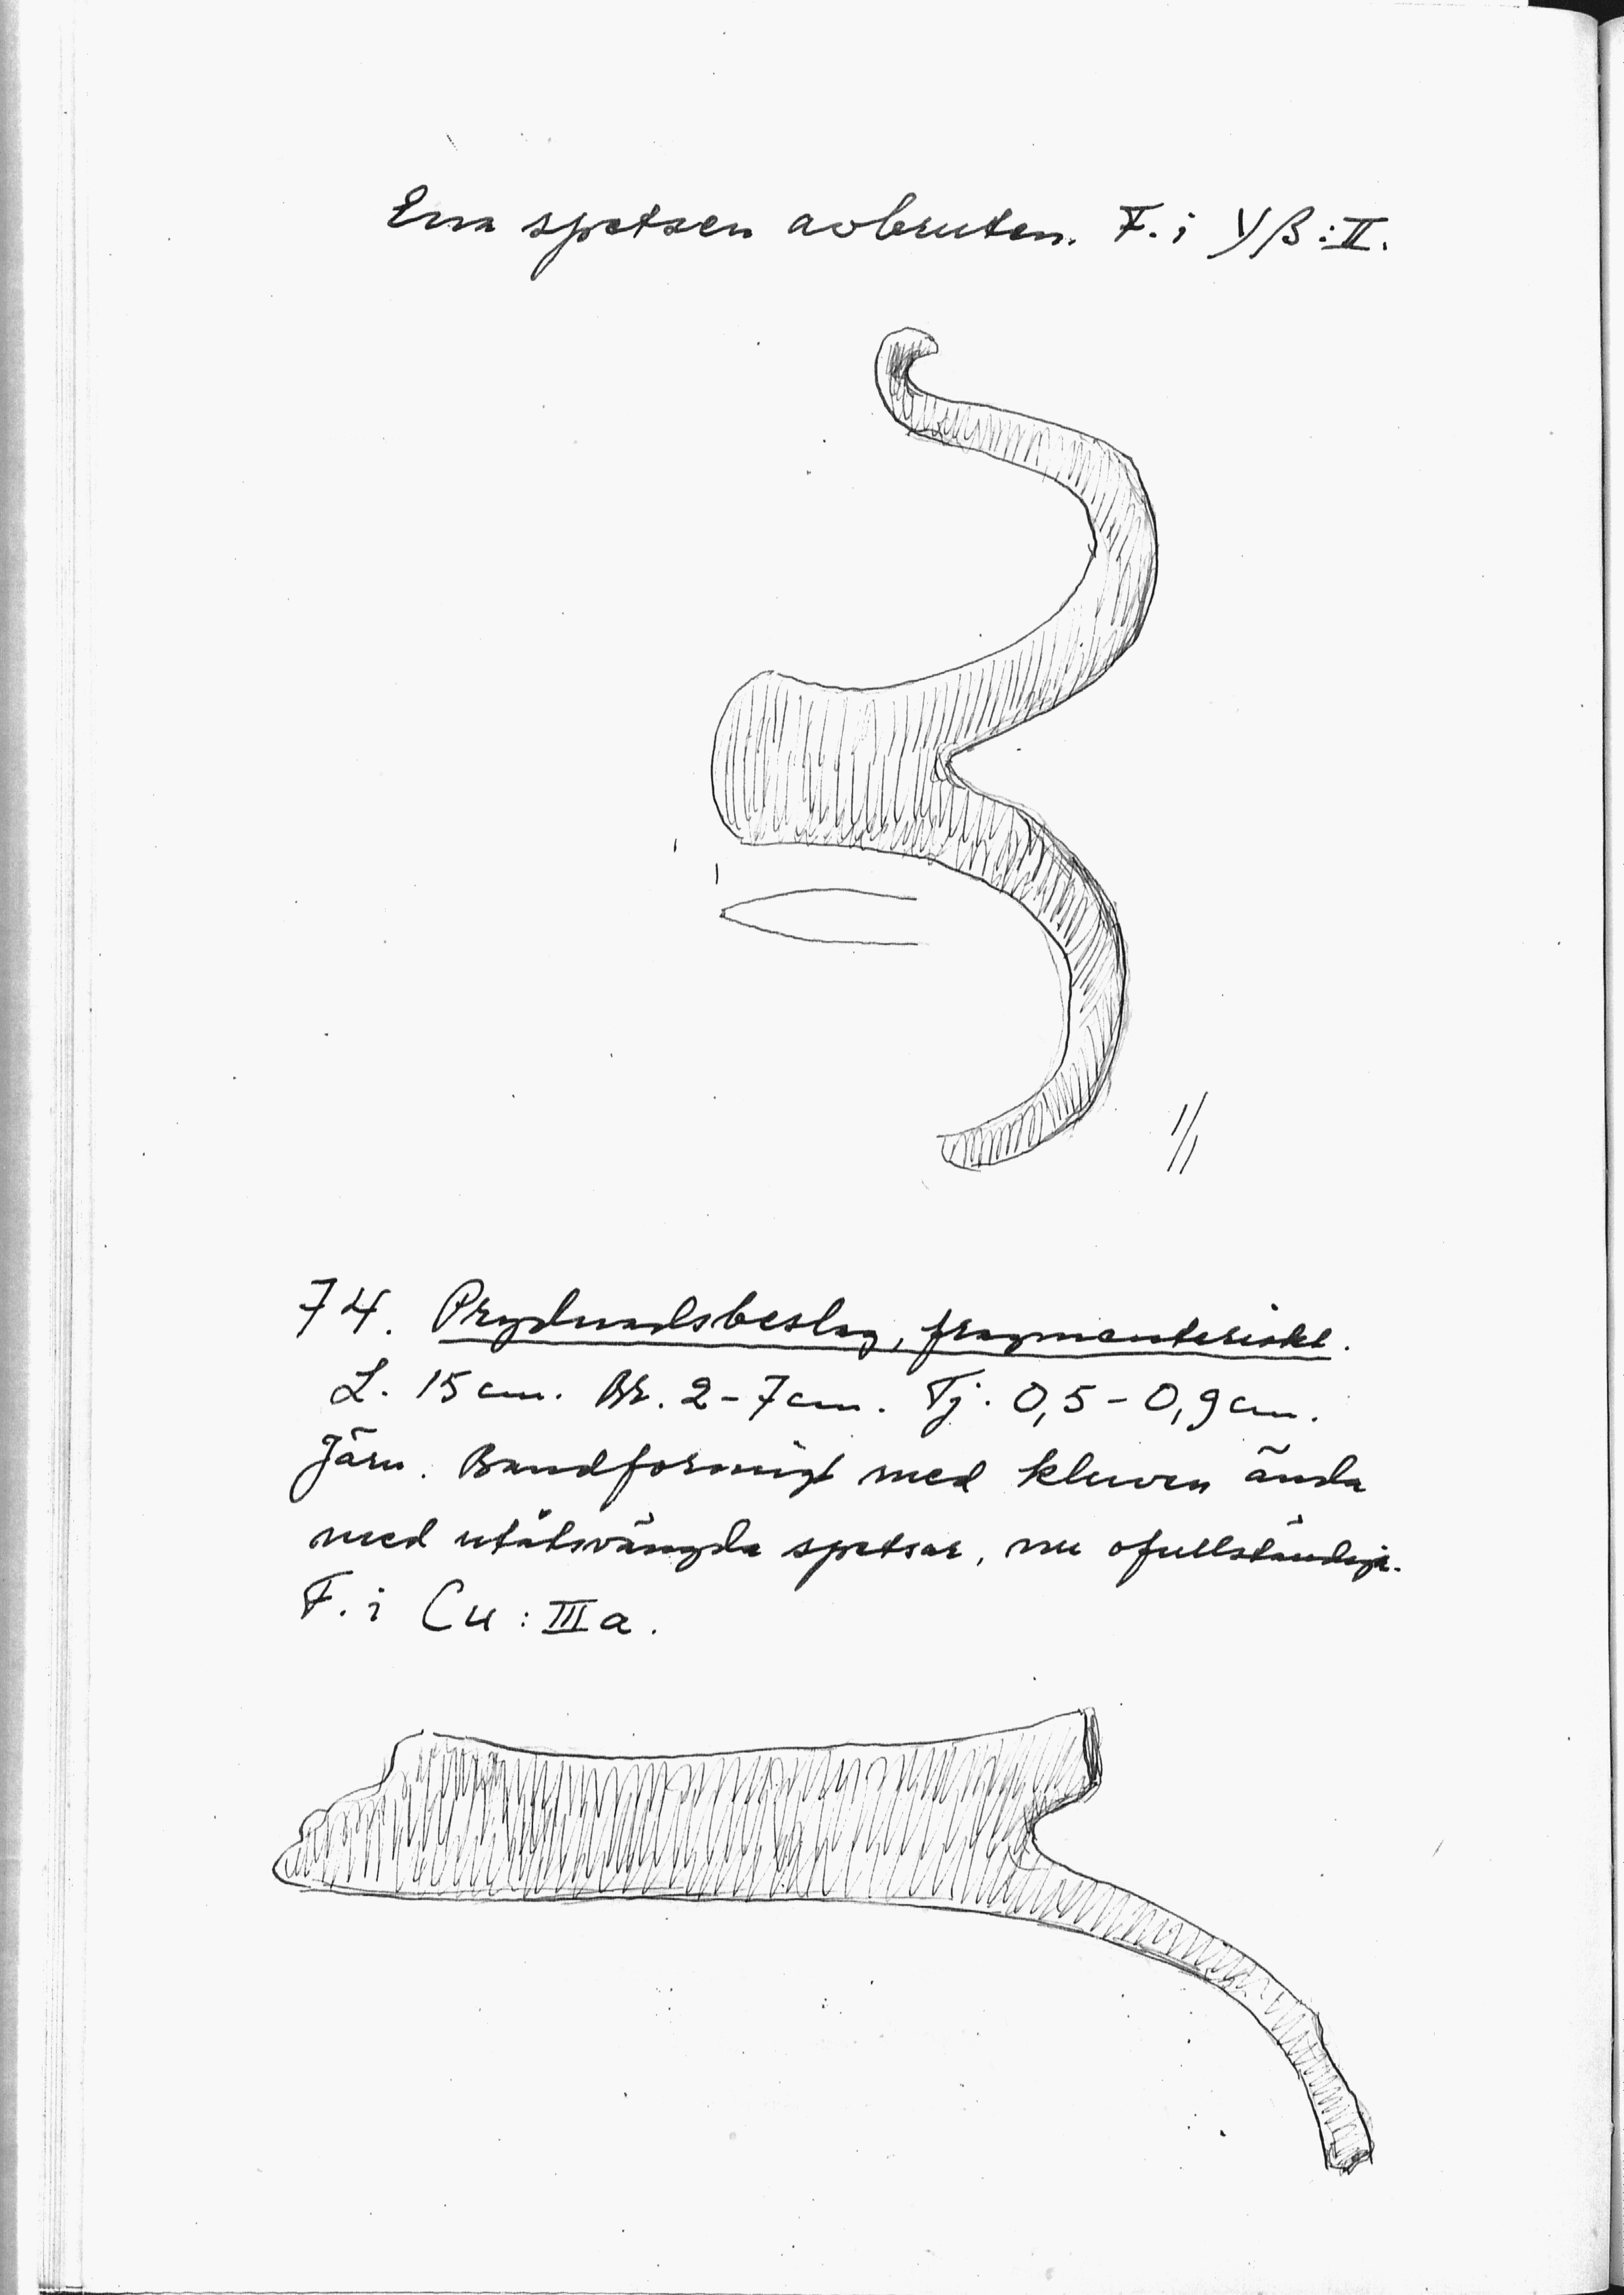 Ena spetsen avbruten. F. i Yβ:II.
1/1
74. Prydnadsbeslag, fragmenteriskt.
L. 15 cm. Br. 2-7 cm. Tj. 0,5-0,9 cm.
Järn. Bandformigt med kluven ända
med utåtsvängda spetsar, nu ofullständiga.
F. i Cu:IIIa.